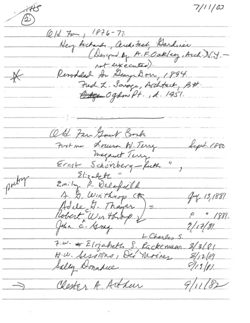 7/11/03
HS
2
Old Farm, 1876-77
Henry Richards, Architect, Gardiner
(Design by A.F. Oakley, Arch. N.Y. —
not executed)
Remodeled for George Dorr, 1894
Fred L. Savage, Architect, B.H.
Ogden Pt., d. 1951.
Old Farm Guest Book
Louisa W. Terry Sept. 1880
Margaret Terry
Ernst Schernberg - Ruth "
Elizabeth "
poetry
Emily P. Delafield
R. G. Winthrop Aug 13, 1881
Adele G. Thayer
Robert Winthrop " " 1881
John C. Gray
L Charles S.
F.W. Elizabeth S. Rackemann
H.W. Sessions, Des Moines
Sally Donahue
→ Chester A. Arthur 9/11/82